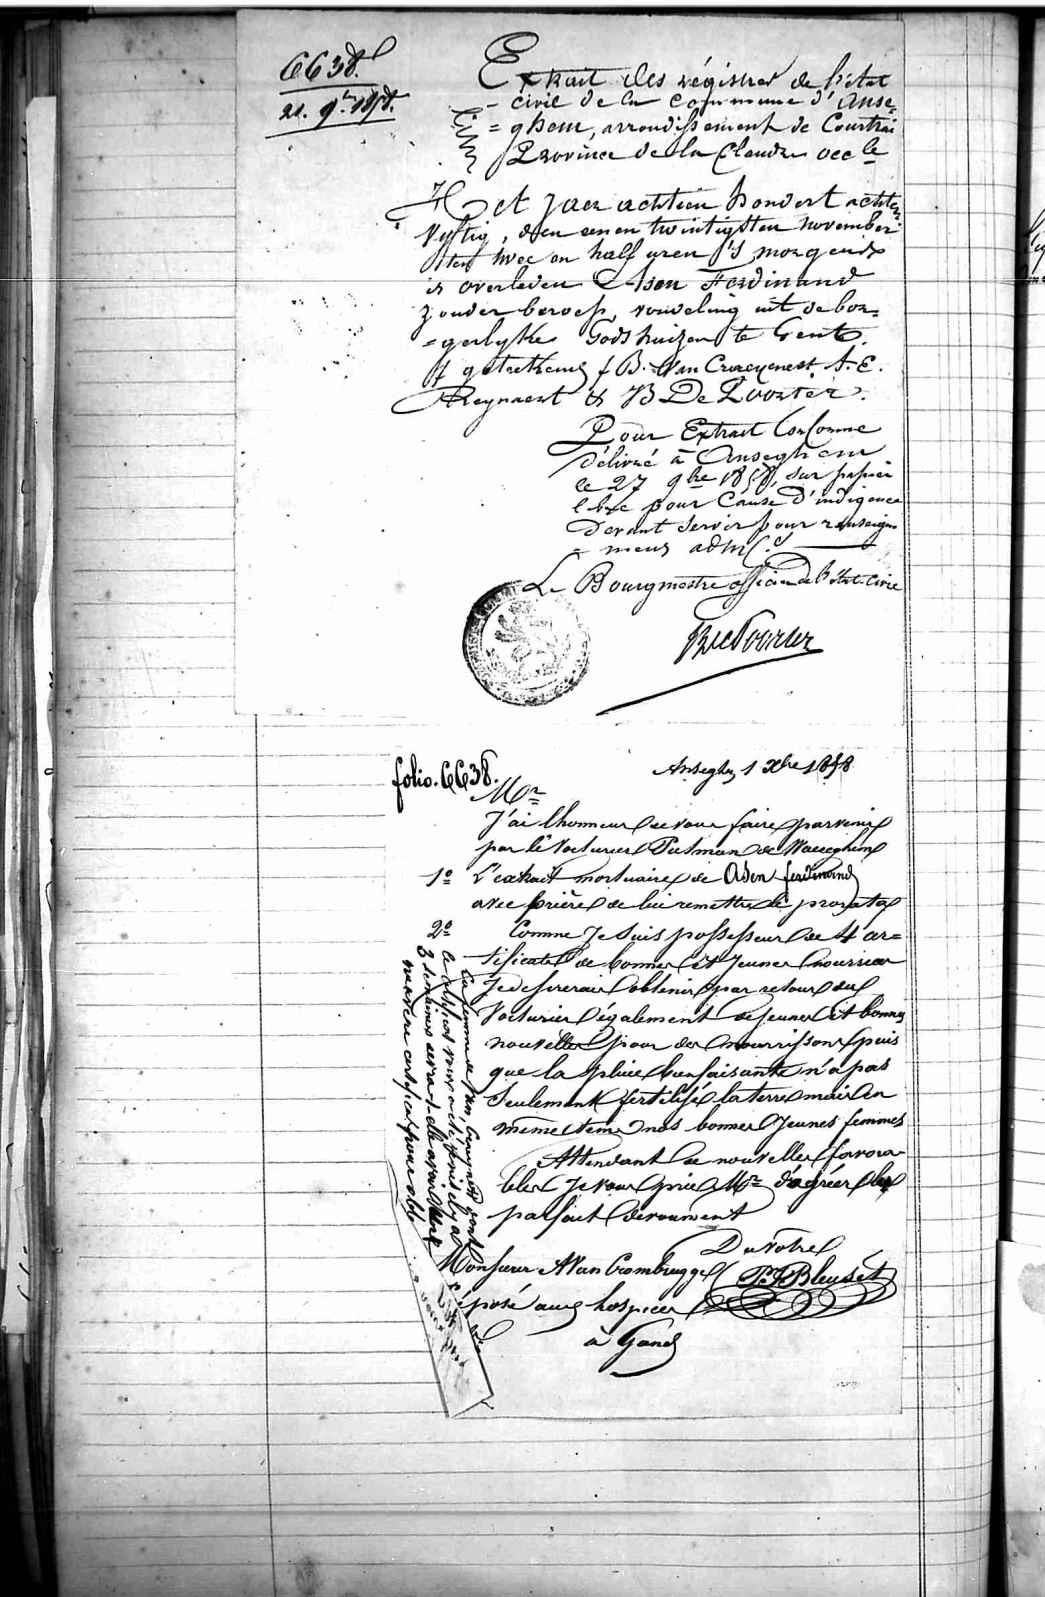 6638.
21. 9bre 1858.
Extrait des régistres de l'état
- civil de la commune d'Anse-
= ghem, arrondissement de Courtrai
Province de la Flandre occle
Het jaer achttien hondert achten
vyftig, den eenen twintigsten november
ten twee en half uren 's morgends
is overleden Ason Ferdinand
zonder beroep, vondeling uit de bor=
=gerlyke Godshuizen te Gent.
f getrekend f B. Van Craeyenest. A. E.
Reynaert & B De Poorter.
Pour Extrait Conforme
délivré à Anseghem
le 27 9bre 1858, sur papier
libre pour cause d'indigence
devant servir pour renseigne
= mens admifs.
Le Bourgmestre officier de l'état-civil
B De Poorter
folio. 6638.
Anseghem 1 Xbre 1858
Mr
J'ai l'honneur de vous faire parvenir
par le voiturier Putman de Waereghem
1º L'extrait mortuaire de Ason ferdinand
avec prière de lui remettre le prorata
2º Comme Je suis possesseur de 4 cer=
tificats de bonnes et Jeunes nourrices
Je desirerais obtenir par retour du
Voiturier également de jeunes et bonnes
nouvelles pour des nourrissons puis
que la pluie bienfaisante n'a pas
seulement fertilisé la terre mais en
même tems nos bonnes Jeunes femmes
Attendant de nouvelles favora
bles Je vous prie Mr d'agréer les
parfait dévoument
Du votre
P. J. Bleuset
Monsieur A Van Crombrugge
préposé aux hospices
à Gand
La femme de Van dont
le certificat vous a été il y a
3 semaines
certificat pour